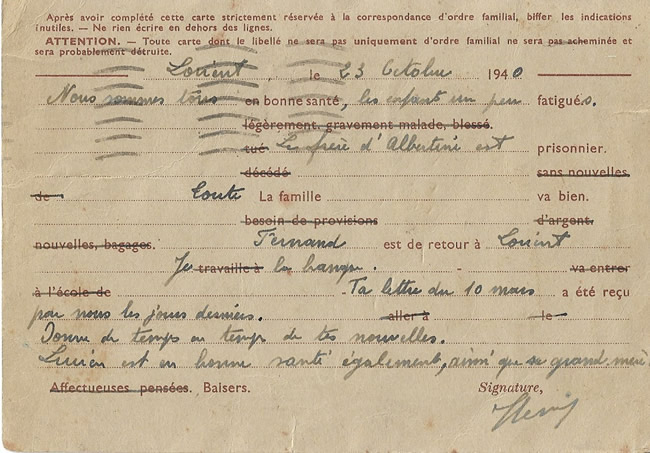 Après avoir complété cette carte strictement réservée à la correspondance d'ordre familial, biffer les indications
inutiles. — Ne rien écrire en dehors des lignes.
ATTENTION. — Toute carte dont le libellé ne sera pas uniquement d'ordre familial ne sera pas acheminée et
sera probablement détruite.
Lorient, le 23 Octobre 1940
Nous sommes tous en bonne santé, les enfant un peu fatigués.
légèrement, gravement malade, blessé.
tué Le frère d'Albertine est prisonnier.
décédé sans nouvelles
de toute La famille va bien.
besoin de provisions d'argent.
nouvelles, bagages. Fernand est de retour à Lorient
Je travaille à la banque. va entrer
à l'école de Ta lettre du 10 mars a été reçu
par nous les jours derniers. aller à le
Donne de temps en temps de tes nouvelles.
Lucien est en bonne santé également, ainsi que sa grand mère
Affectueuses pensées. Baisers. Signature,